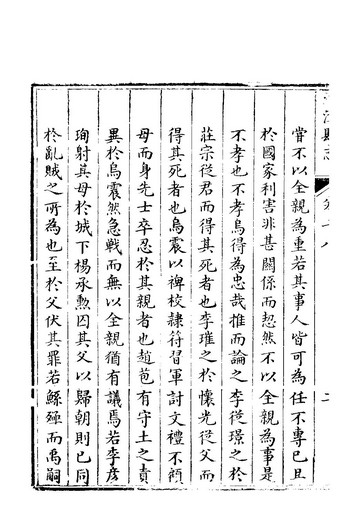 縣志
嘗不以全親為重若其事人皆可為任不專已且
於國家利害非甚關係而恝然不以全親為事是
不孝也不孝烏得為忠哉推而論之李從璟之於
莊宗從君而得其死者也李璀之於懷光從父而
得其死者也烏震以裨校隸符習軍討文禮不顧
母而身先士卒忍於其親者也趙苞有守土之責
異於烏震然急戰而無以全親猶有議焉若李彥
珣射其母於城下楊承勲囚其父以歸朝則已同
於亂賊之所為也至於父伏其罪若鯀殛而禹嗣